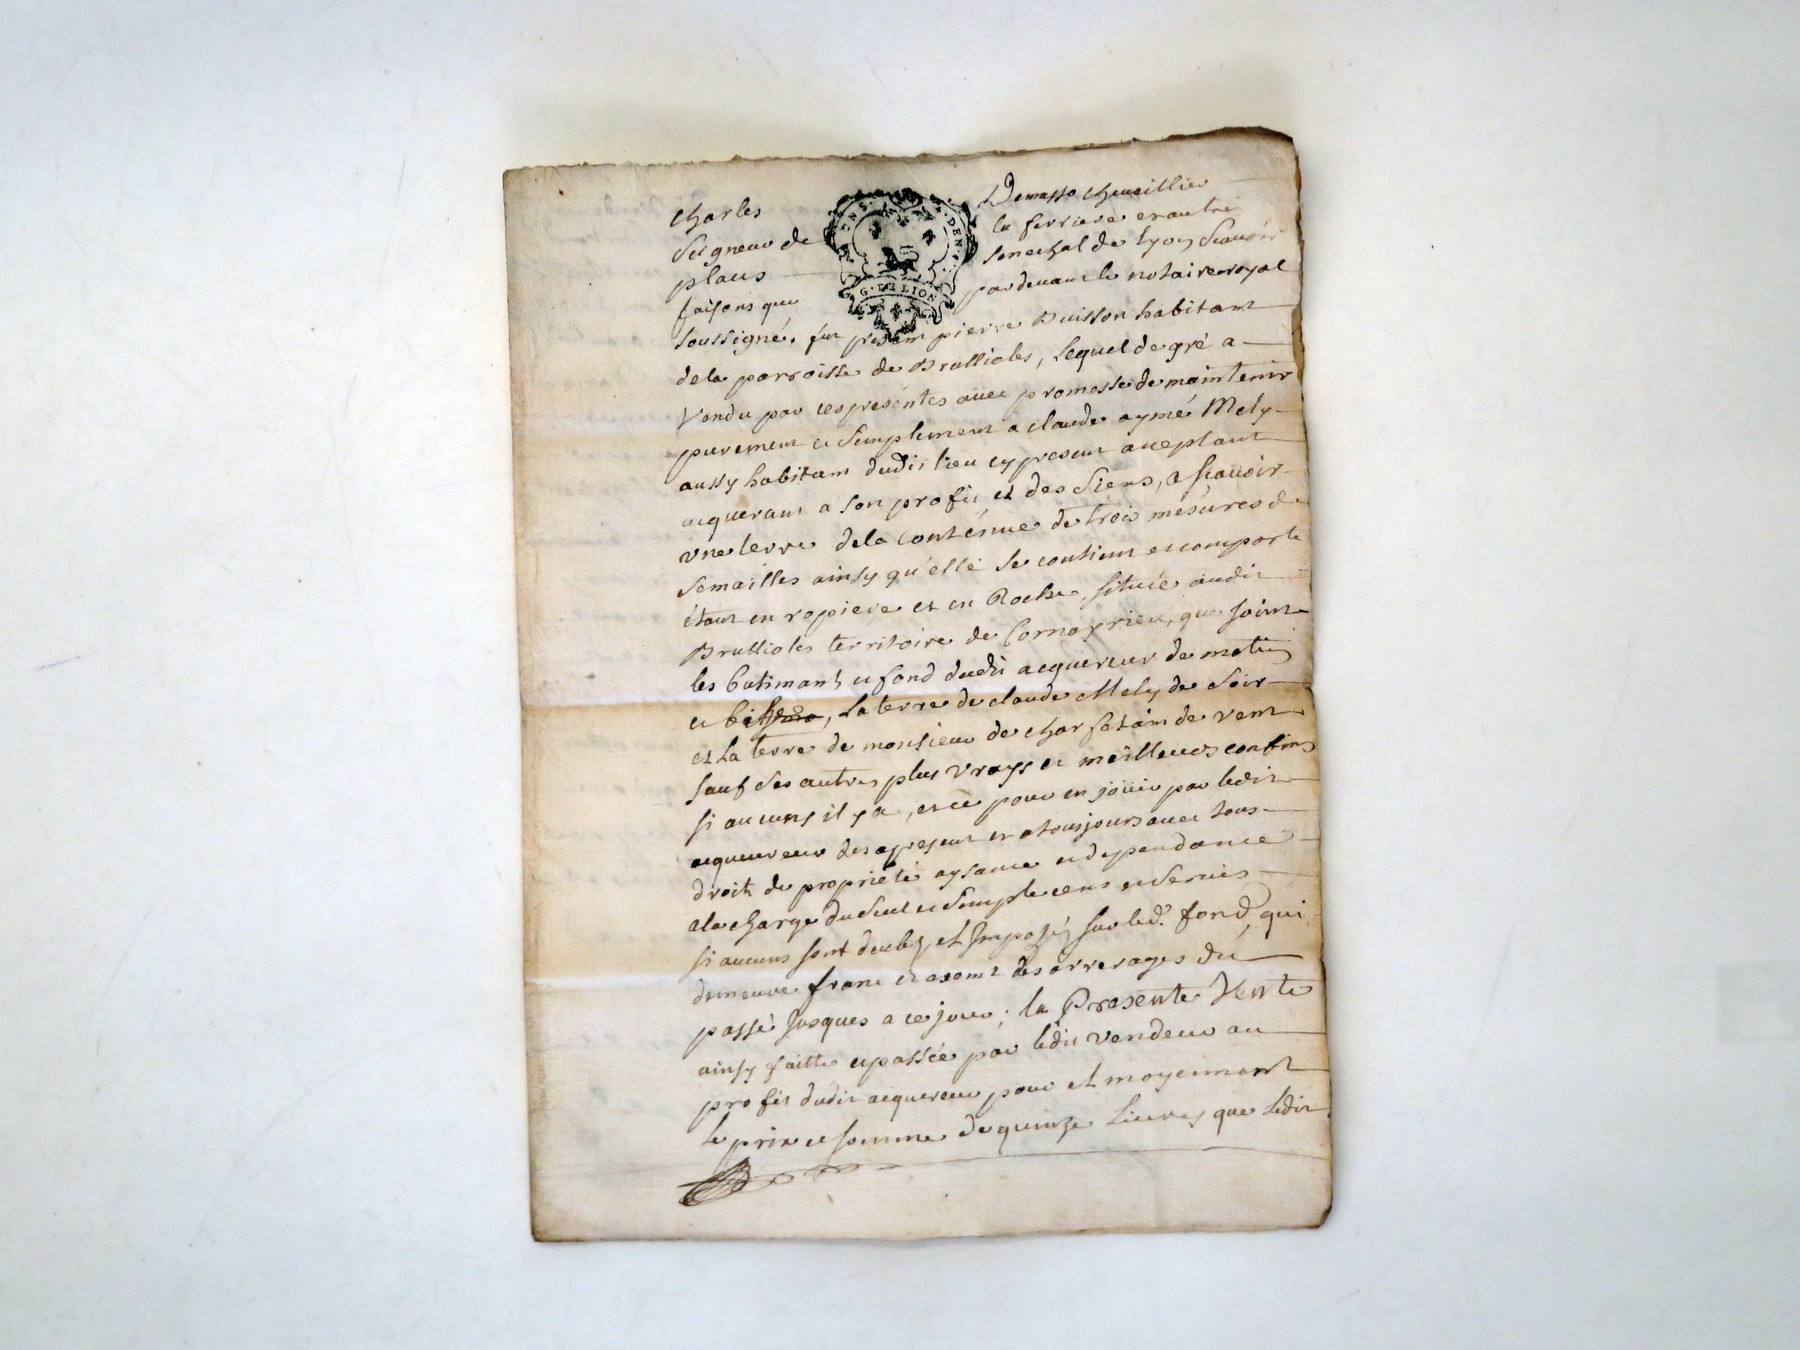 Charles Demasso Chevaillier
Seigneur de la ferriere et autre
places senechal de Lyon Scauoir
faisons que pardeuant le notaire royal
soussigné, fut present pierre Buisson habitant
dela parroisse de Brullioles, Lequel de gré a
Vendu par ces presentes avec promesse de maintenir
purement et simplement a claude aymé Mely
aussy habitant dudit lieu cy present aceptant
acquerant a son profit et des siens, a scauoir
vne terre dela contenue de trois mesures de
semailles ainsy qu'elle se contient et comporte
étant en ropiere et en Roche, située audit
Brullioles territoire de Cornayrieu, que joint
les batimants et fond dudit acquereur de matin
et bise, la terre de claude Mely de soir
et la terre de monsieur de de vent
sauf ses autres plus vrays et meilleurs confins
si aucuns il y a, et ce pour en joüir par ledit
acquereur des apresent et a tousjours avec tous
droit de proprieté aysance et dependance
ala charge du seul et simple cens et seruis
si aucuns sont deubs et Imposés sur led. fond, qui
demeure franc et exemt des arrerages du
passé Jusques a ce jour; la Presente Vente
ainsy faitte et passée par ledit vendeur au
profit dudit acquereur pour et moyennant
le prix et somme de quinze Liures que ledit
G. DE LION